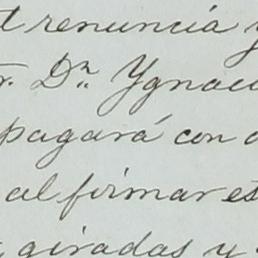 renuncia y
r. Dn. Ygnac
pagará con
al firmar es
giradas y